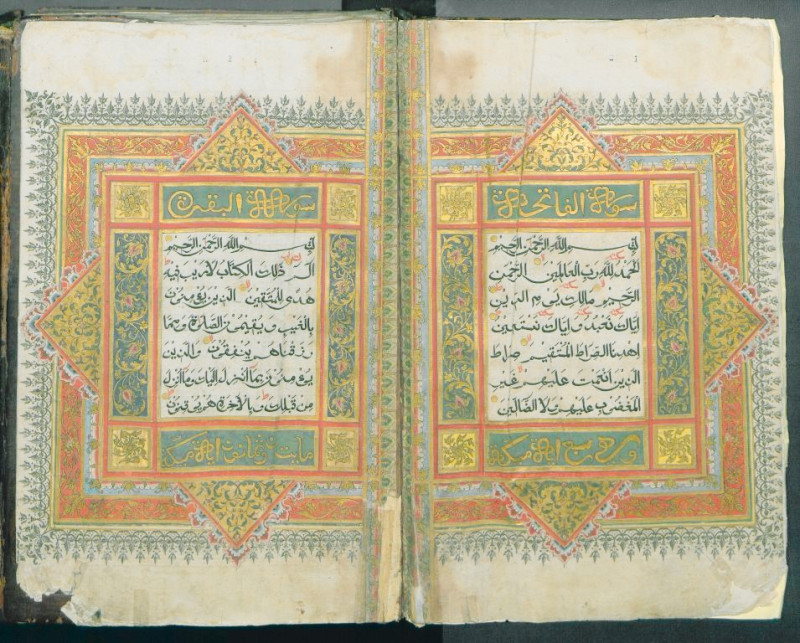 سورة الفاتحة
بسم الله الرحمن الرحيم
الحمد لله رب العالمين الرحمن
الرحيم مالك يوم الدين
اياك نعبد واياك نستعين
اهدنا الصراط المستقيم صراط
الذين انعمت عليهم غير
المغضوب عليهم ولا الضالين
وهي سبع اية مكية
سورة البقرة
بسم الله الرحمن الرحيم
الم ذلك الكتاب لا ريب فيه
هدى للمتقين الذين يؤمنون
بالغيب ويقيمون الصلوة ومما
رزقناهم ينفقون والذين
يؤمنون بما انزل اليك وما انزل
من قبلك وبالاخرة هم يوقنون